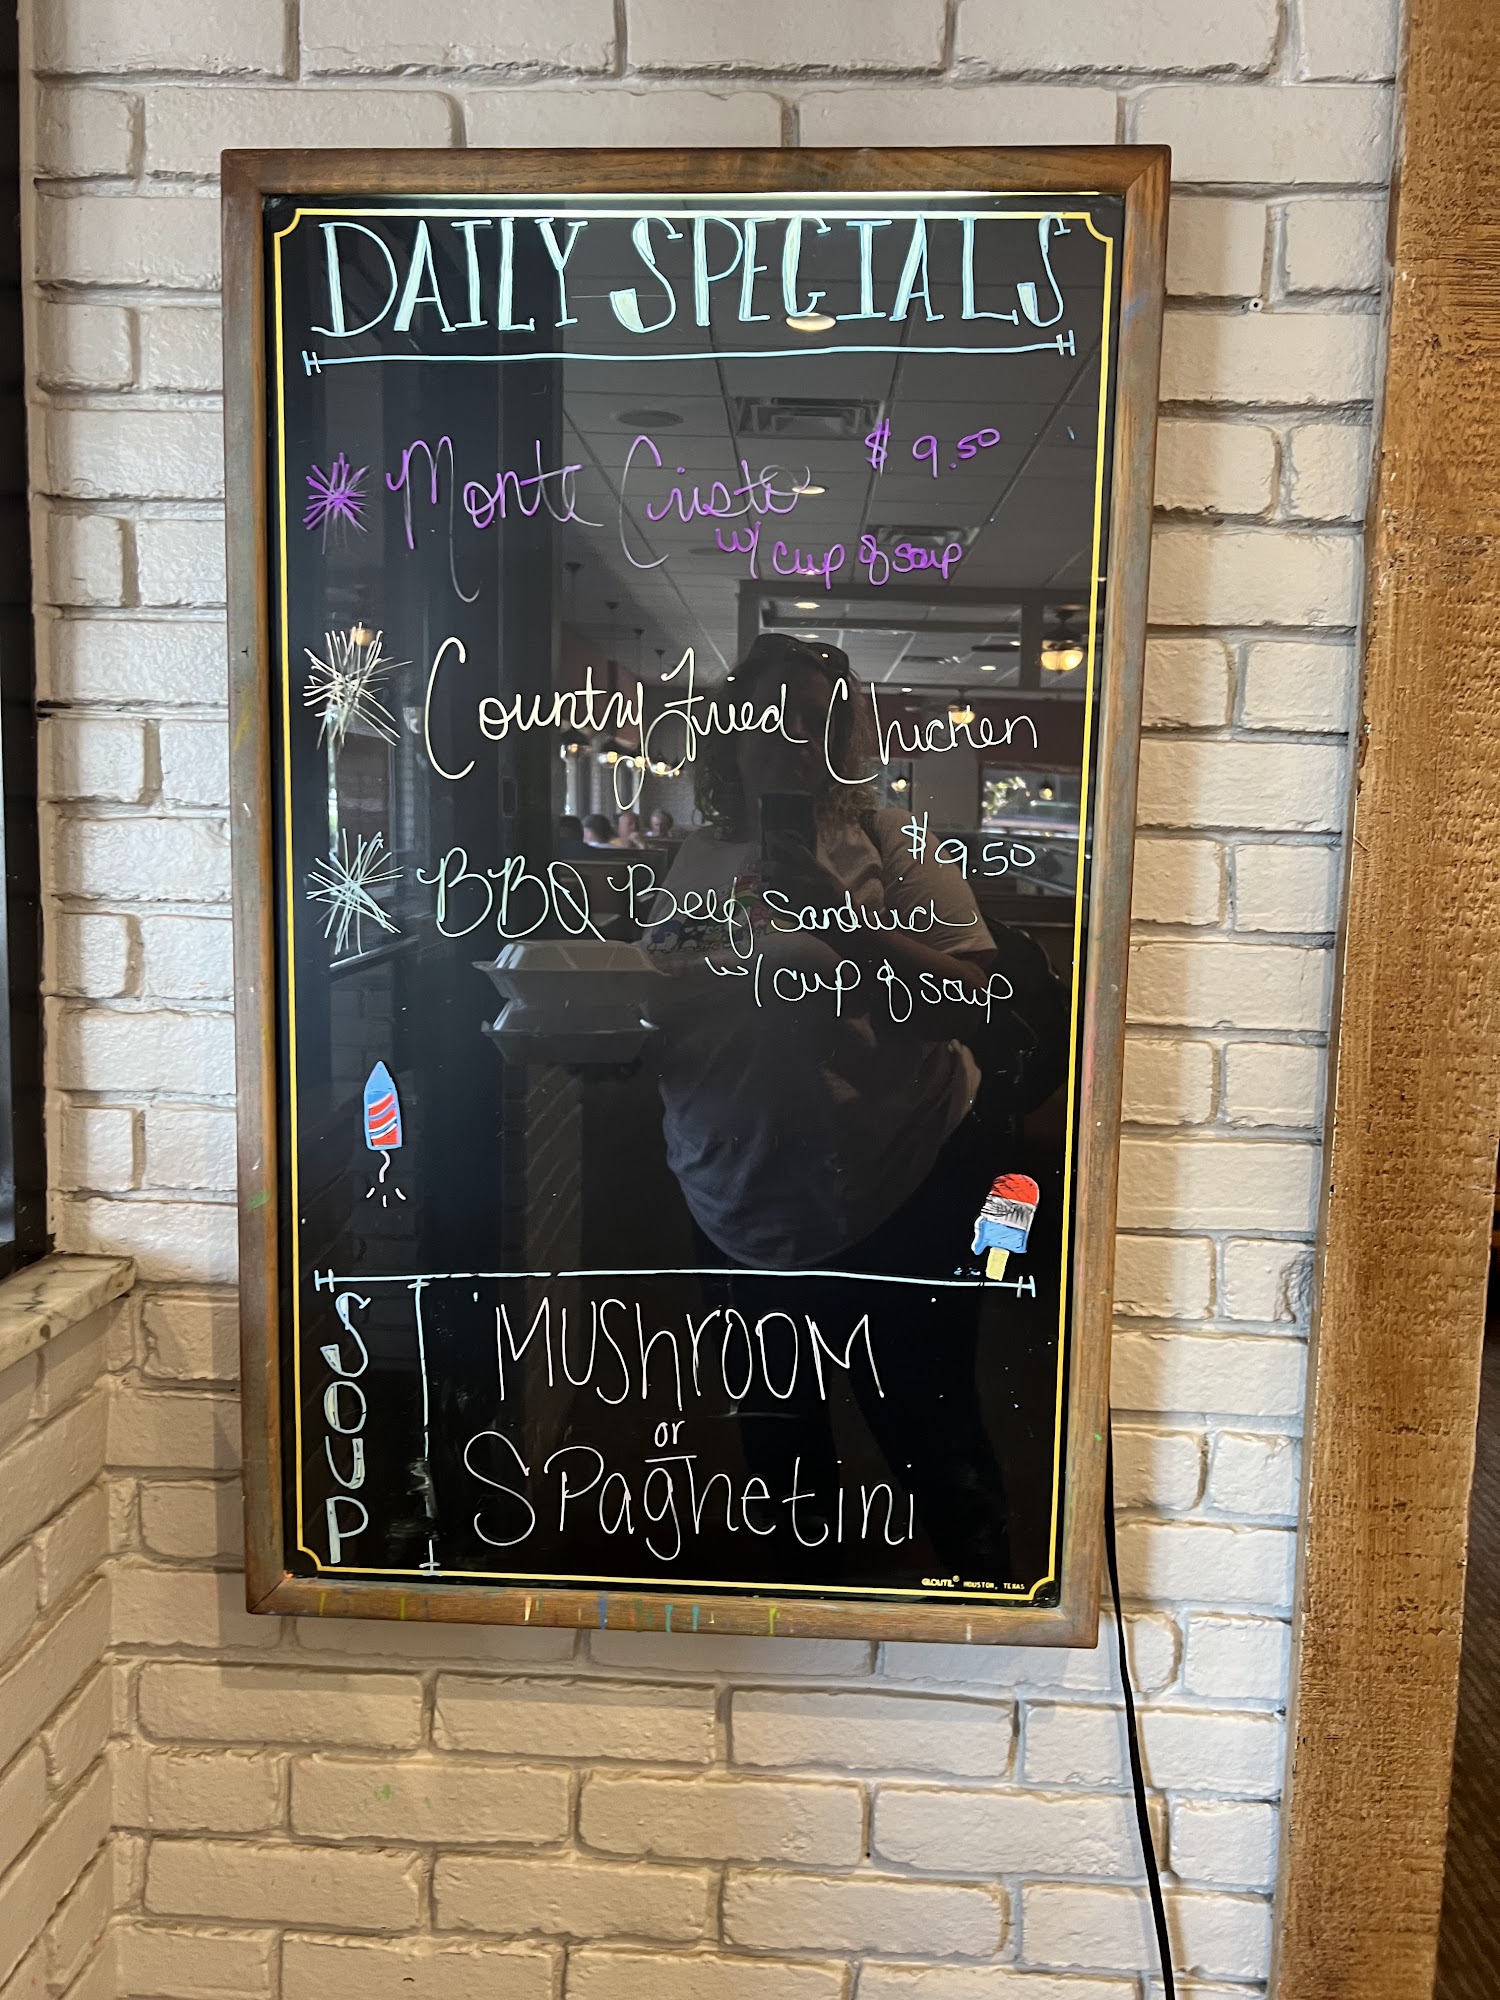 DAILY SPECIALS
Monte Cristo $9.50
w/ cup of soup
Country Fried Chicken
$9.50
BBQ Beef Sandwich
w/ cup of soup
SOUP
MUShrOOM
or
SPaghetini
HOUSTON, TEXAS